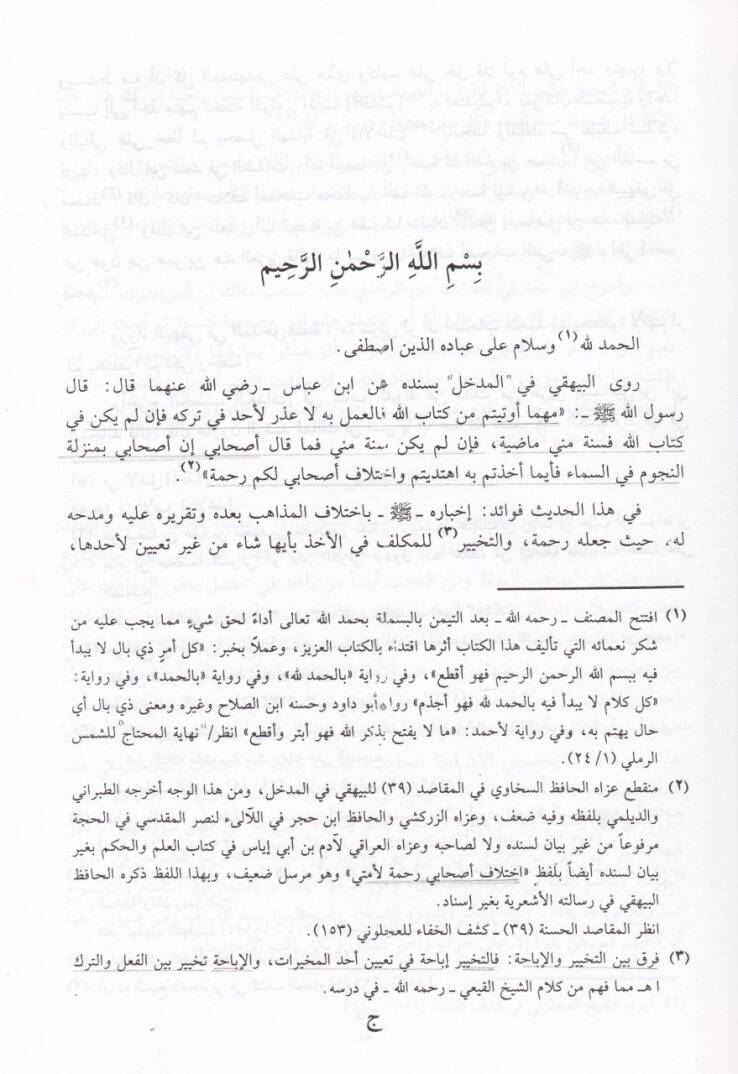 بِسْمِ اللَّهِ الرَّحْمٰنِ الرَّحِيمِ
الحمد لله(١) وسلام على عباده الذين اصطفى.
روى البيهقي في "المدخل" بسنده عن ابن عباس ـ رضي الله عنهما قال: قال
رسول الله ﷺ ـ: «مهما أوتيتم من كتاب الله فالعمل به لا عذر لأحد في تركه فإن لم يكن في
كتاب الله فسنة مني ماضية، فإن لم يكن سنة مني فما قال أصحابي إن أصحابي بمنزلة
النجوم في السماء فأيما أخذتم به اهتديتم واختلاف أصحابي لكم رحمة»(٢).
في هذا الحديث فوائد: إخباره ـ ﷺ ـ باختلاف المذاهب بعده وتقريره عليه ومدحه
له، حيث جعله رحمة، والتخيير(٣) للمكلف في الأخذ بأيها شاء من غير تعيين لأحدها،
(١) افتتح المصنف ـ رحمه الله ـ بعد التيمن بالبسملة بحمد الله تعالى أداءً لحق شيءٍ مما يجب عليه من
شكر نعمائه التي تأليف هذا الكتاب أثرها اقتداء بالكتاب العزيز، وعملاً بخبر: «كل أمرٍ ذي بال لا يبدأ
فيه ببسم الله الرحمن الرحيم فهو أقطع»، وفي رواية «بالحمد لله»، وفي رواية «بالحمد»، وفي رواية:
«كل كلام لا يبدأ فيه بالحمد لله فهو أجذم» رواه أبو داود وحسنه ابن الصلاح وغيره ومعنى ذي بال أي
حال يهتم به، وفي رواية لأحمد: «ما لا يفتح بذكر الله فهو أبتر وأقطع» انظر/"نهاية المحتاج" للشمس
الرملي (١/ ٢٤).
(٢) منقطع عزاه الحافظ السخاوي في المقاصد (٣٩) للبيهقي في المدخل، ومن هذا الوجه أخرجه الطبراني
والديلمي بلفظه وفيه ضعف، وعزاه الزركشي والحافظ ابن حجر في اللآلىء لنصر المقدسي في الحجة
مرفوعاً من غير بيان لسنده ولا لصاحبه وعزاه العراقي لآدم بن أبي إياس في كتاب العلم والحكم بغير
بيان لسنده أيضاً بلفظ «اختلاف أصحابي رحمة لأمتي» وهو مرسل ضعيف، وبهذا اللفظ ذكره الحافظ
البيهقي في رسالته الأشعرية بغير إسناد.
انظر المقاصد الحسنة (٣٩) ـ كشف الخفاء للعجلوني (١٥٣).
(٣) فرق بين التخيير والإباحة: فالتخيير إباحة في تعيين أحد المخيرات، والإباحة تخيير بين الفعل والترك
اهـ مما فهم من كلام الشيخ القيعي ـ رحمه الله ـ في درسه.
ج